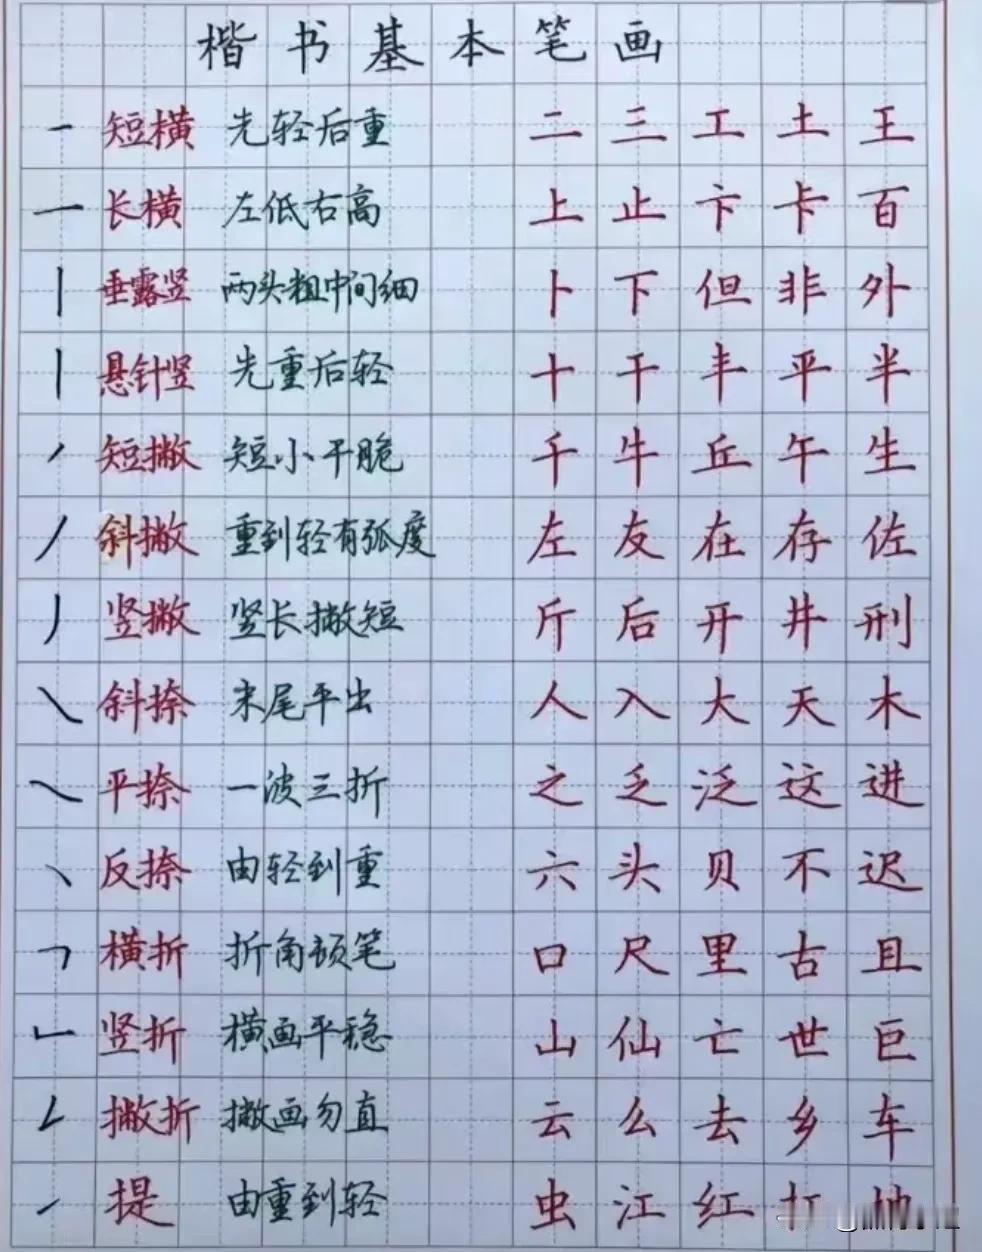 楷书基本笔画
一 短横 先轻后重 二 三 工 土 王
一 长横 左低右高 上 止 卞 卡 百
丨 垂露竖 两头粗中间细 卜 下 但 非 外
丨 悬针竖 先重后轻 十 干 丰 平 半
㇒ 短撇 短小干脆 千 牛 丘 午 生
丿 斜撇 重到轻有弧度 左 友 在 存 佐
丿 竖撇 竖长撇短 斤 后 开 井 刑
㇏ 斜捺 末尾平出 人 入 大 天 木
㇏ 平捺 一波三折 之 乏 泛 这 进
㇔ 反捺 由轻到重 六 头 贝 不 迟
㇕ 横折 折角顿笔 口 尺 里 古 且
㇗ 竖折 横画平稳 山 仙 亡 世 巨
㇜ 撇折 撇画勿直 云 么 去 乡 车
㇀ 提 由重到轻 虫 江 红 打